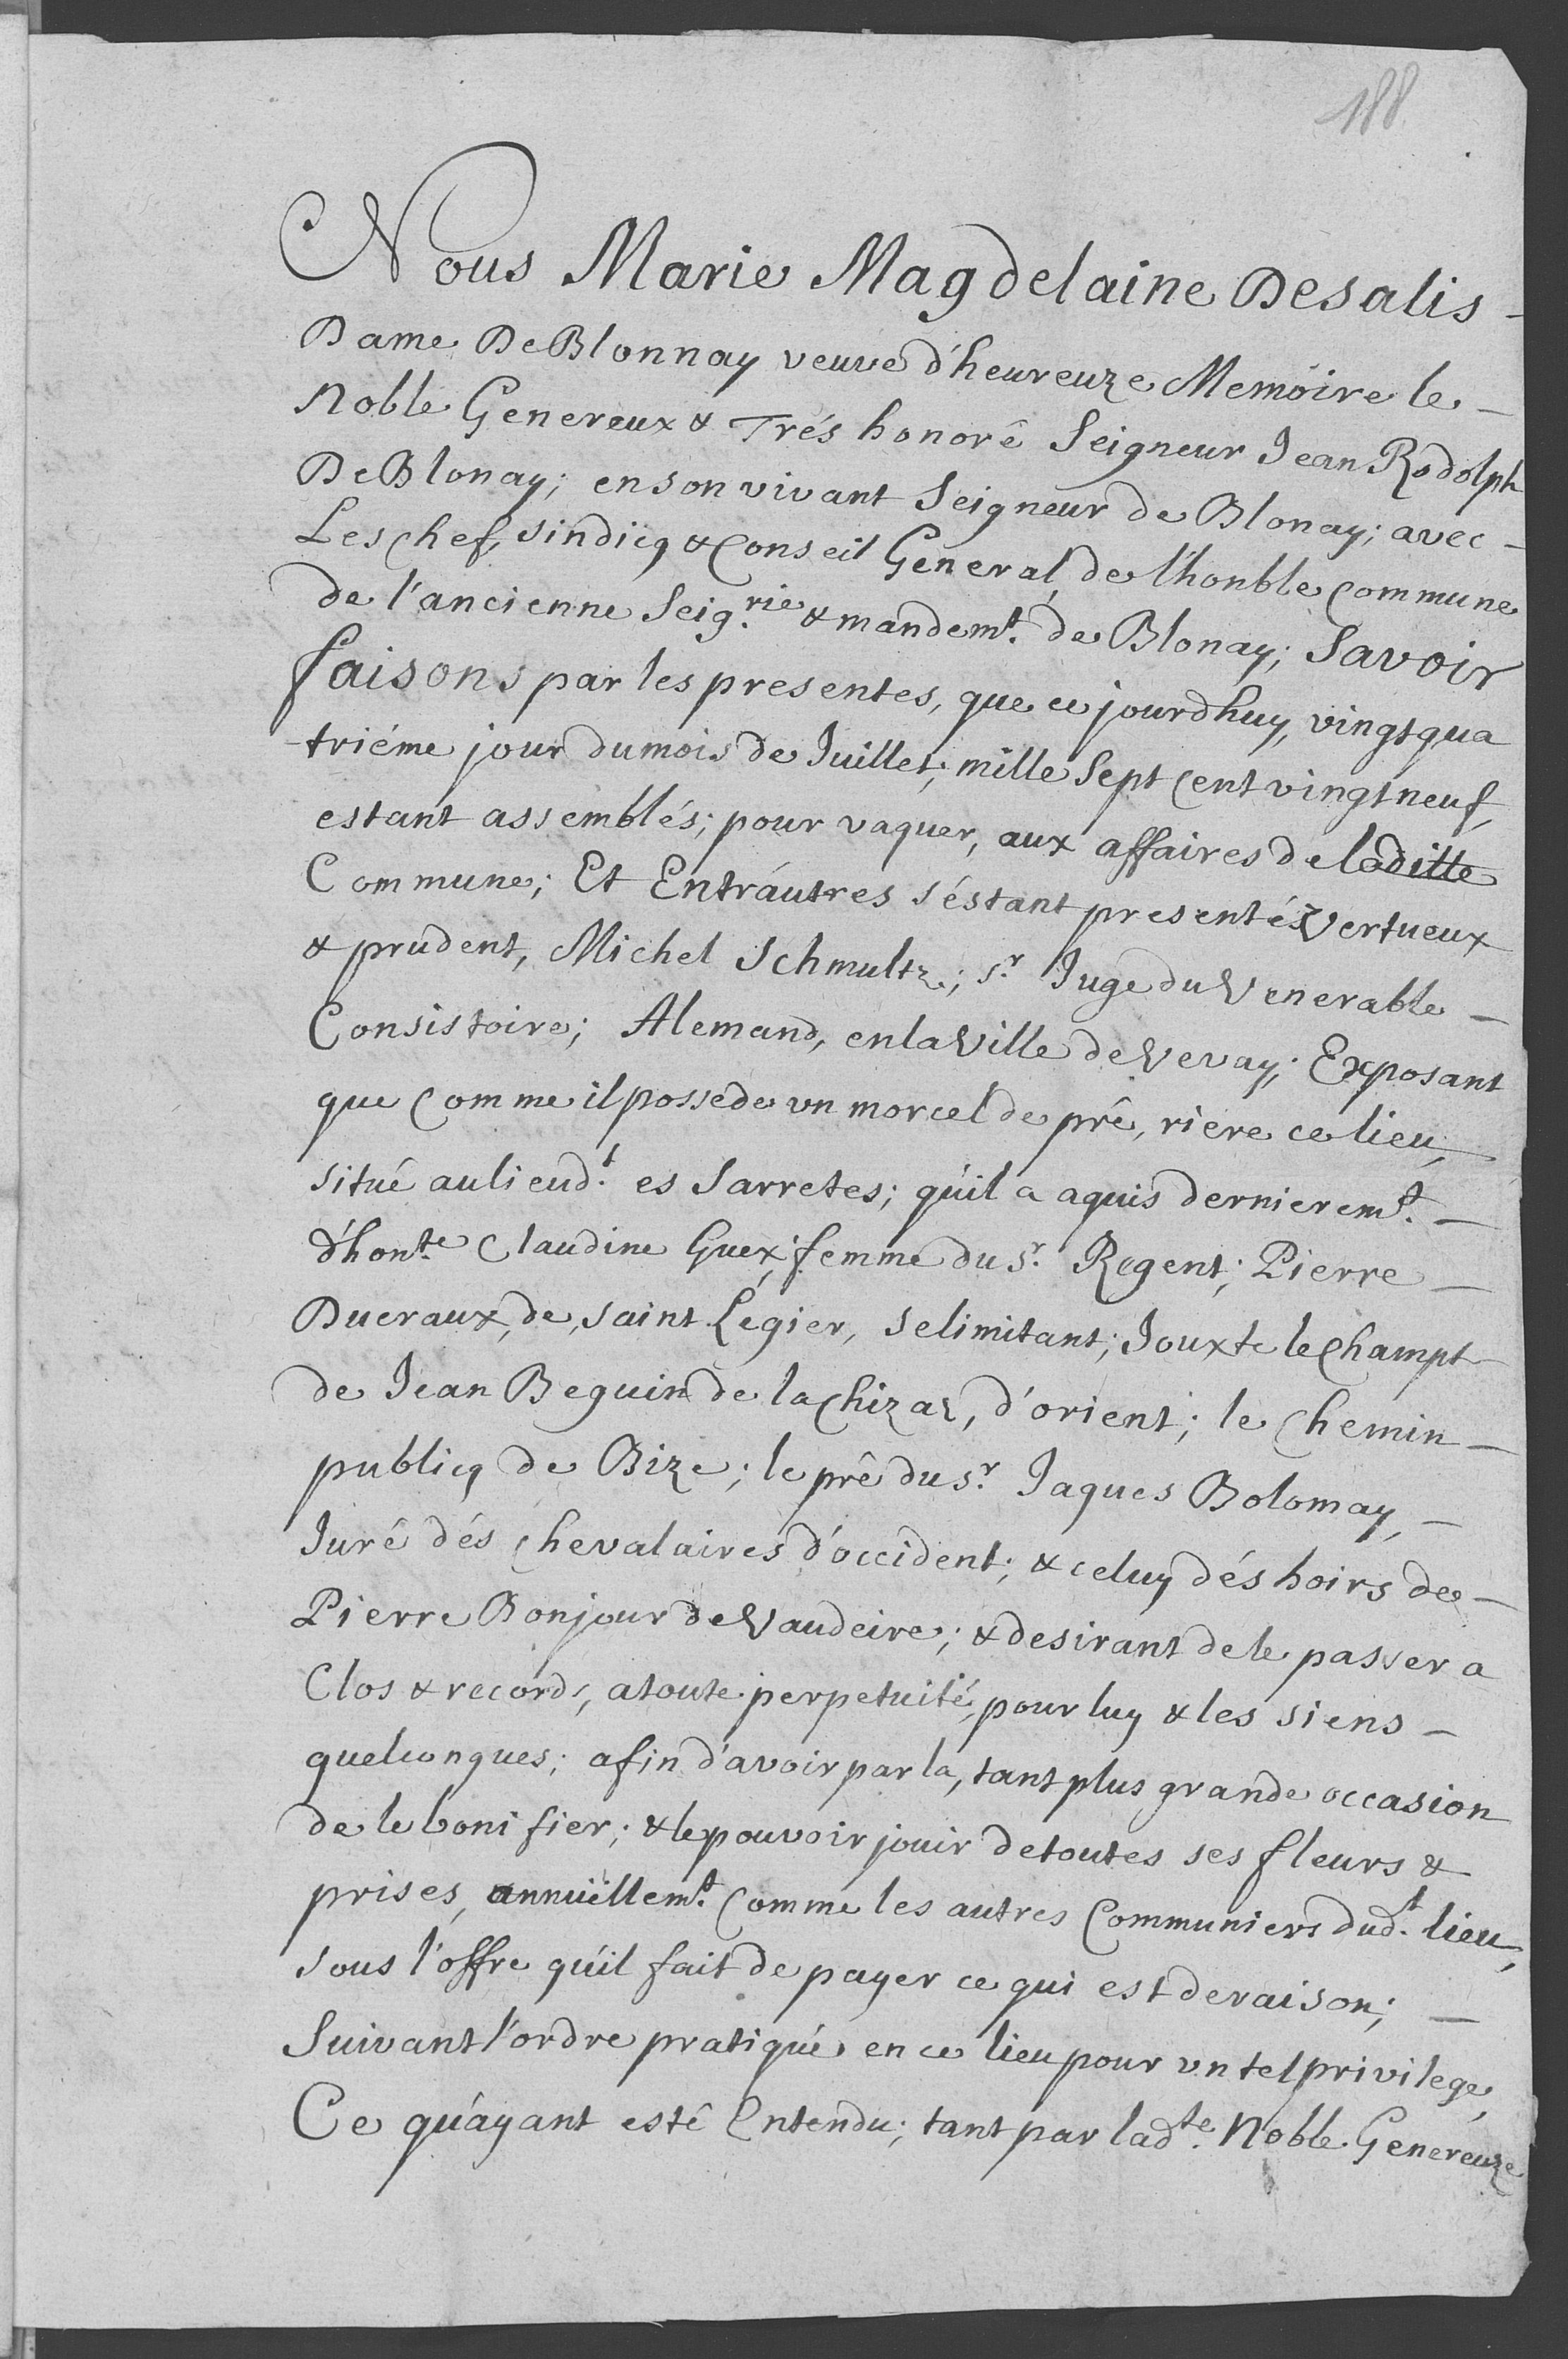 188
Nous Marie Magdelaine Desalis -
Dame DeBlonnay veuve d'heureuze Memoire le -
Noble Genereux & Trés honoré Seigneur Jean Rodolph
DeBlonay; en son vivant Seigneur de Blonay; avec -
Les Chef, Sindicq & Conseil General, de l'honble Commune
de l'ancienne Seig.rie & mandemt. de Blonay; Savoir
faisons par les presentes, que ce jourdhuy, vingtqua
-triéme jour du mois de Juillet; mille Sept Cent vingtneuf,
estant assemblés; pour vaquer, aux affaires de laditte
Commune; Et Entr'autres s'éstant presentés Vertueux
& prudent, Michel Schmultz; sr. Juge du Venerable -
Consistoire; Alemand, en la Ville de Vevay; Exposant
que Comme il possede un morcel de prê, riere ce lieu,
situé au lieu dt. es Sarretes; qu'il a aquis dernieremt. -
d'honte. Claudine Guex; femme du sr. Regent; Pierre -
Ducraux, de, saint Légier, se limitant; Jouxte le Champt
de Jean Beguin de la Chizaz, d'orient; le Chemin -
publicq de Bize; le prê du sr. Jaques Bolomay, -
Juré dés Chevalaires d'occident; & celuy dés hoirs de -
Pierre Bonjour de Vaudeire; & desirant de le passer a
Clos & records, a toute perpetuité, pour luy & les siens -
quelconques; afin d'avoir par la, tant plus grande occasion
de le bonifier; & le pouvoir jouir de toutes ses fleurs &
prises, annuëllemt. Comme les autres Communiers dudt. lieu,
sous l'offre qu'il fait de payer ce qui est de raison; -
Suivant l'ordre pratiqué en ce lieu pour un tel privilege,
Ce qu'ayant esté Entendu; tant par ladte. Noble Genereuze